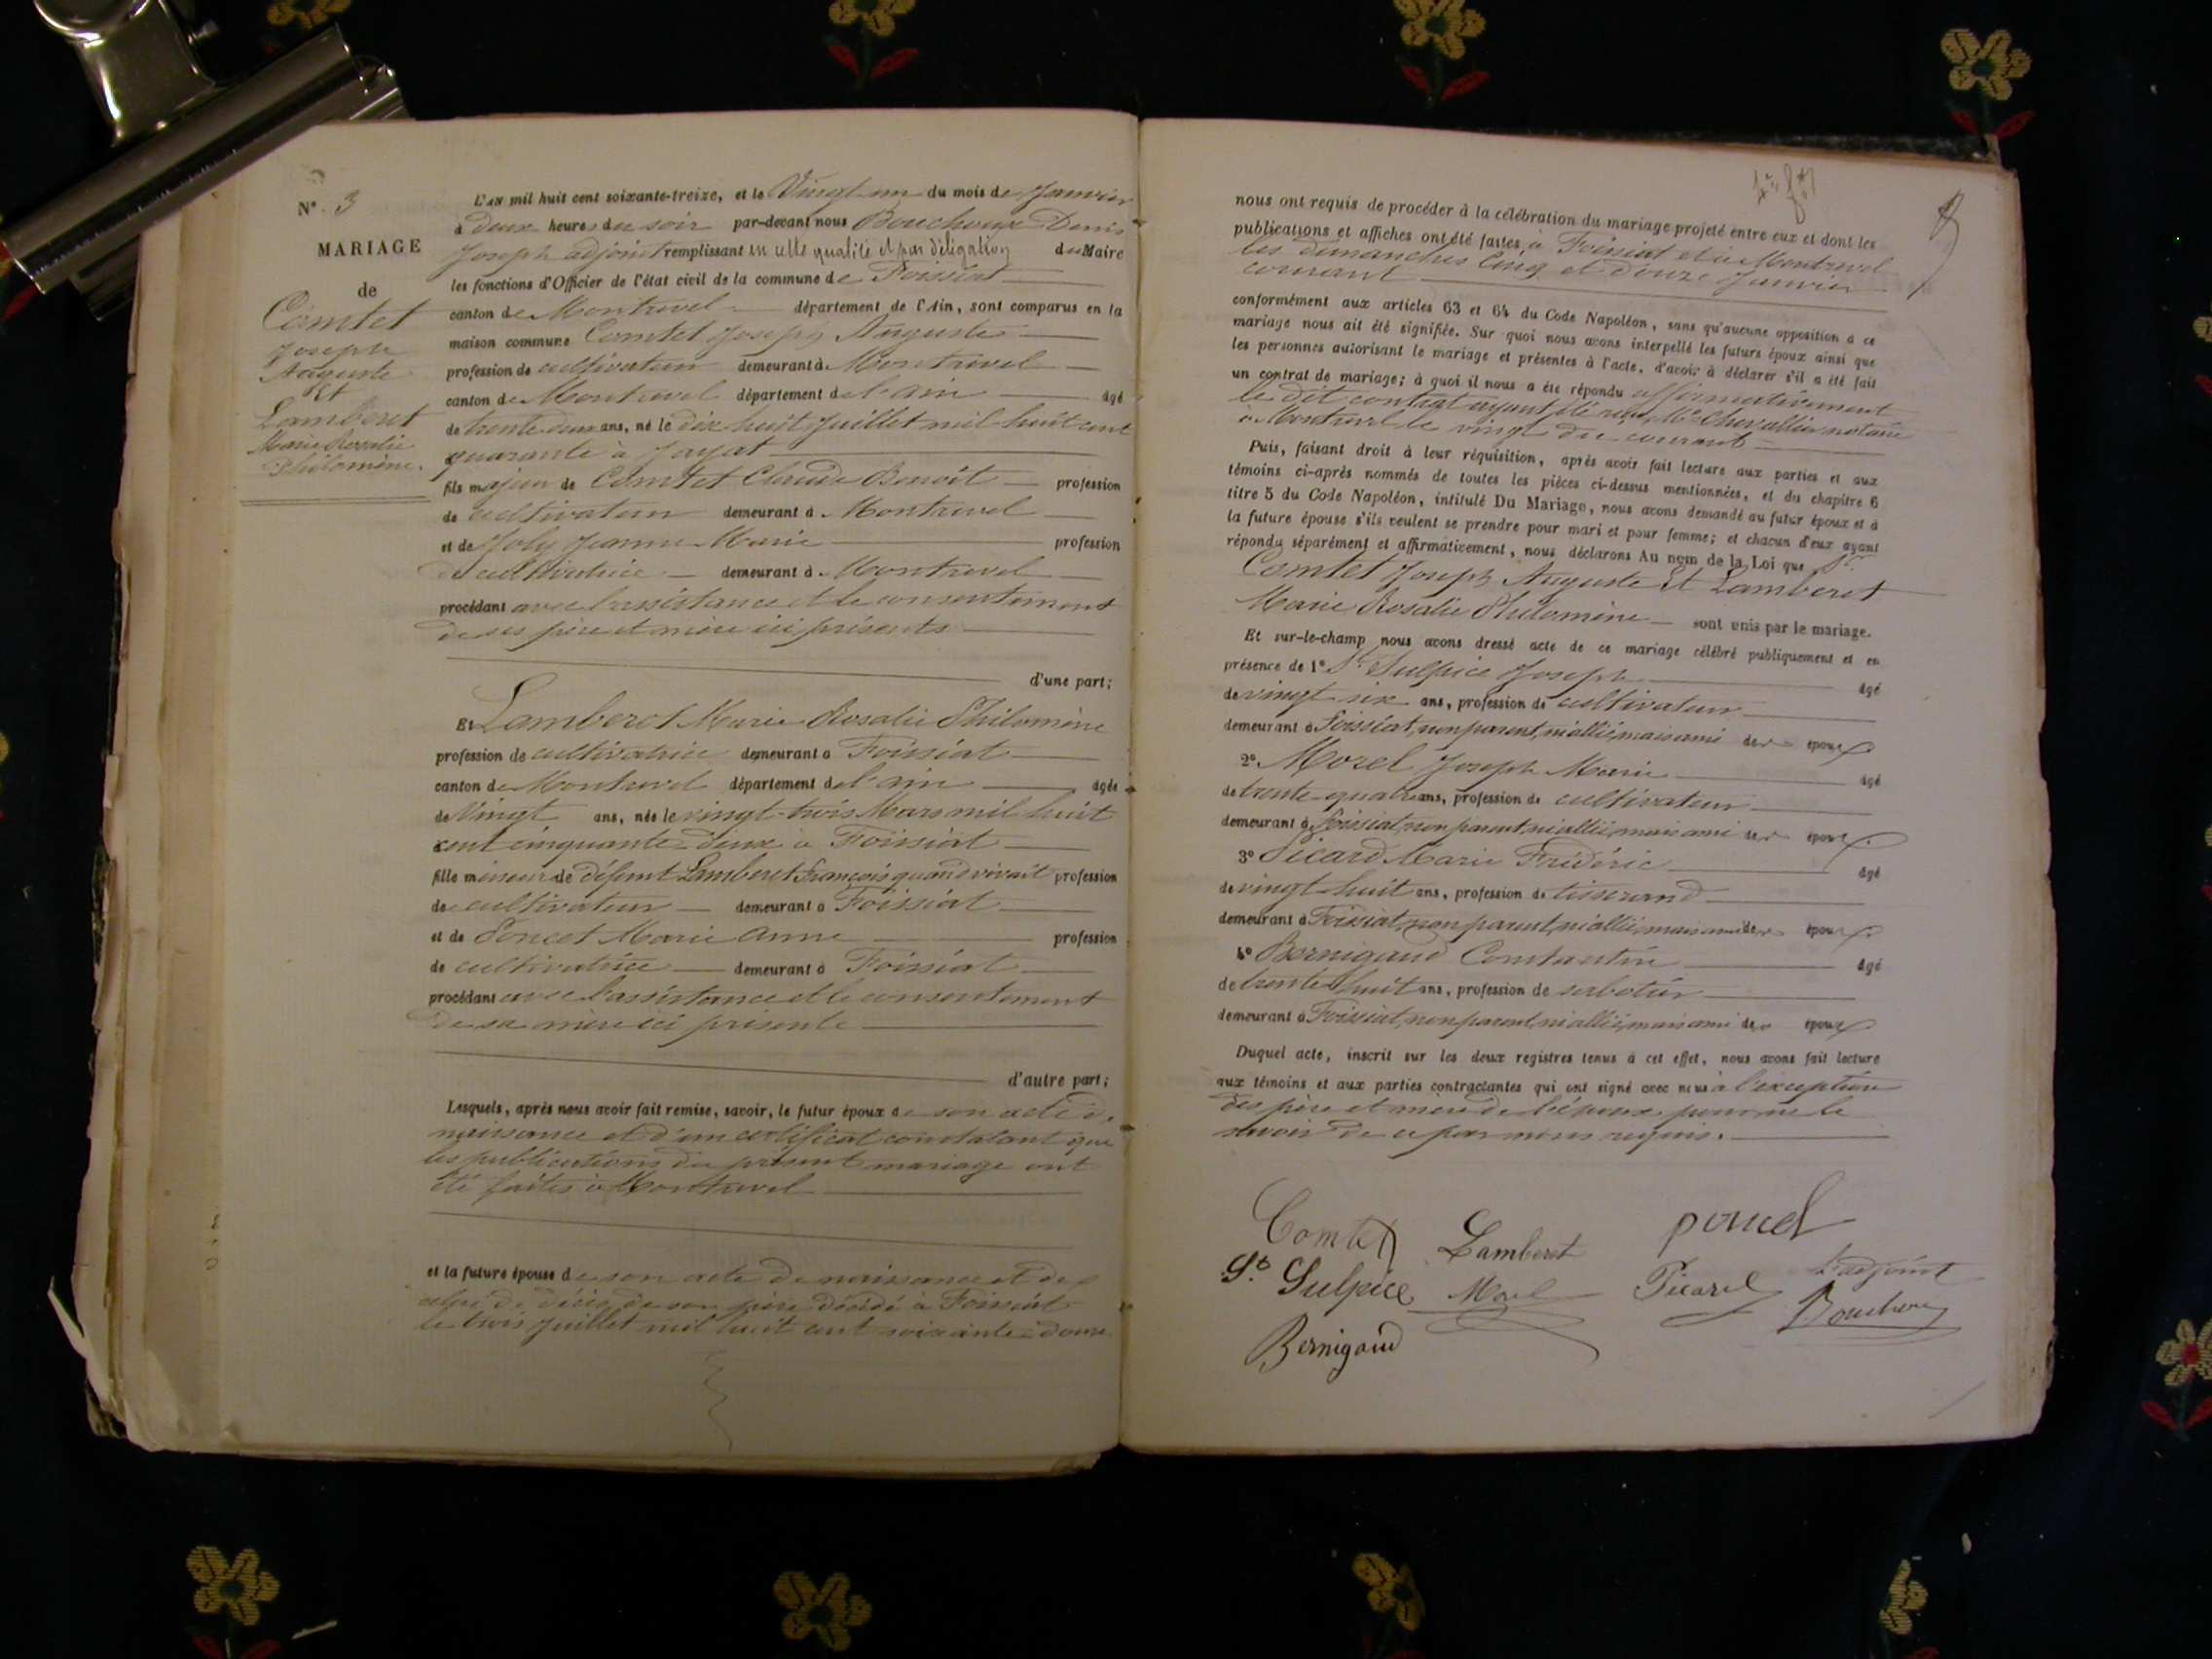 N° 3
MARIAGE
de
Comtet
Joseph
Auguste
Et
Lamberet
Marie Rosalie
Philomène.
L'AN mil huit cent soixante-treize, et le Vingt un du mois de Janvier
à deux heures du soir par-devant nous Bouchoux Denis
Joseph adjoint remplissant en cette qualité et par délégation du Maire
les fonctions d'Officier de l'état civil de la commune de Foissiat
canton de Montrevel département de l'Ain, sont comparus en la
maison commune Comtet Joseph Auguste
profession de cultivateur demeurant à Montrevel
canton de Montrevel département de l'ain âgé
de trente deux ans, né le dix huit Juillet mil huit cent
quarante à Jayat
fils majeur de Comtet Claude Benoît profession
de cultivateur demeurant à Montrevel
et de Joly Jeanne Marie profession
de cultivatrice demeurant à Montrevel
procédant avec l'assistance et le consentement
de ses père et mère ici présents
d'une part;
Et Lamberet Marie Rosalie Philomène
profession de cultivatrice demeurant à Foissiat
canton de Montrevel département de l'ain âgée
de Vingt ans, née le vingt-trois Mars mil huit
cent cinquante-deux à Foissiat
fille mineure de défunt Lamberet François quand vivait profession
de cultivateur demeurant à Foissiat
et de Poncet Marie Anne profession
de cultivatrice demeurant à Foissiat
procédant avec l'assistance et le consentement
de sa mère ici présente
d'autre part;
Lesquels, après nous avoir fait remise, savoir, le futur époux de son acte de
naissance et d'un certificat constatant que
les publications du présent mariage ont
été faites à Montrevel
et la future épouse de son acte de naissance et de
celui de décès de son père décédé à Foissiat
le trois Juillet mil huit cent soixante-douze
nous ont requis de procéder à la célébration du mariage projeté entre eux et dont les
publications et affiches ont été faites à Foissiat et à Montrevel
les dimanches Cinq et douze Janvier
courant
conformément aux articles 63 et 64 du Code Napoléon, sans qu'aucune opposition à ce
mariage nous ait été signifiée. Sur quoi nous avons interpellé les futurs époux ainsi que
les personnes autorisant le mariage et présentes à l'acte, d'avoir à déclarer s'il a été fait
un contrat de mariage; à quoi il nous a été répondu affirmativement
le dit contrat ayant été reçu Me Chevallier notaire
à Montrevel le vingt du courant
Puis, faisant droit à leur réquisition, après avoir fait lecture aux parties et aux
témoins ci-après nommés de toutes les pièces ci-dessus mentionnées, et du chapitre 6
titre 5 du Code Napoléon, intitulé Du Mariage, nous avons demandé au futur époux et à
la future épouse s'ils veulent se prendre pour mari et pour femme; et chacun d'eux ayant
répondu séparément et affirmativement, nous déclarons Au nom de la Loi que
Comtet Joseph Auguste Et Lamberet
Marie Rosalie Philomène sont unis par le mariage.
Et sur-le-champ nous avons dressé acte de ce mariage célébré publiquement et en
présence de 1° St Sulpice Joseph âgé
de vingt six ans, profession de cultivateur
demeurant à Foissiat, non parent, ni allié, mais ami des époux
2° Morel Joseph Marie âgé
de trente-quatre ans, profession de cultivateur
demeurant à Foissiat, non parent, ni allié, mais ami des époux.
3° Picard Marie Frédéric âgé
de vingt-huit ans, profession de tisserand
demeurant à Foissiat, non parent, ni allié, mais ami des époux
4° Bernigaud Constantin âgé
de trente-huit ans, profession de sabotier
demeurant à Foissiat, non parent, ni allié, mais ami des époux
Duquel acte, inscrit sur les deux registres tenus à cet effet, nous avons fait lecture
aux témoins et aux parties contractantes qui ont signé avec nous à l'exception
des père et mère de l'époux pour ne le
savoir de ce par nous requis.
Comtet Lamberet poncet
St Sulpice Morel Picard L'adjoint
Bouchoux
Bernigaud